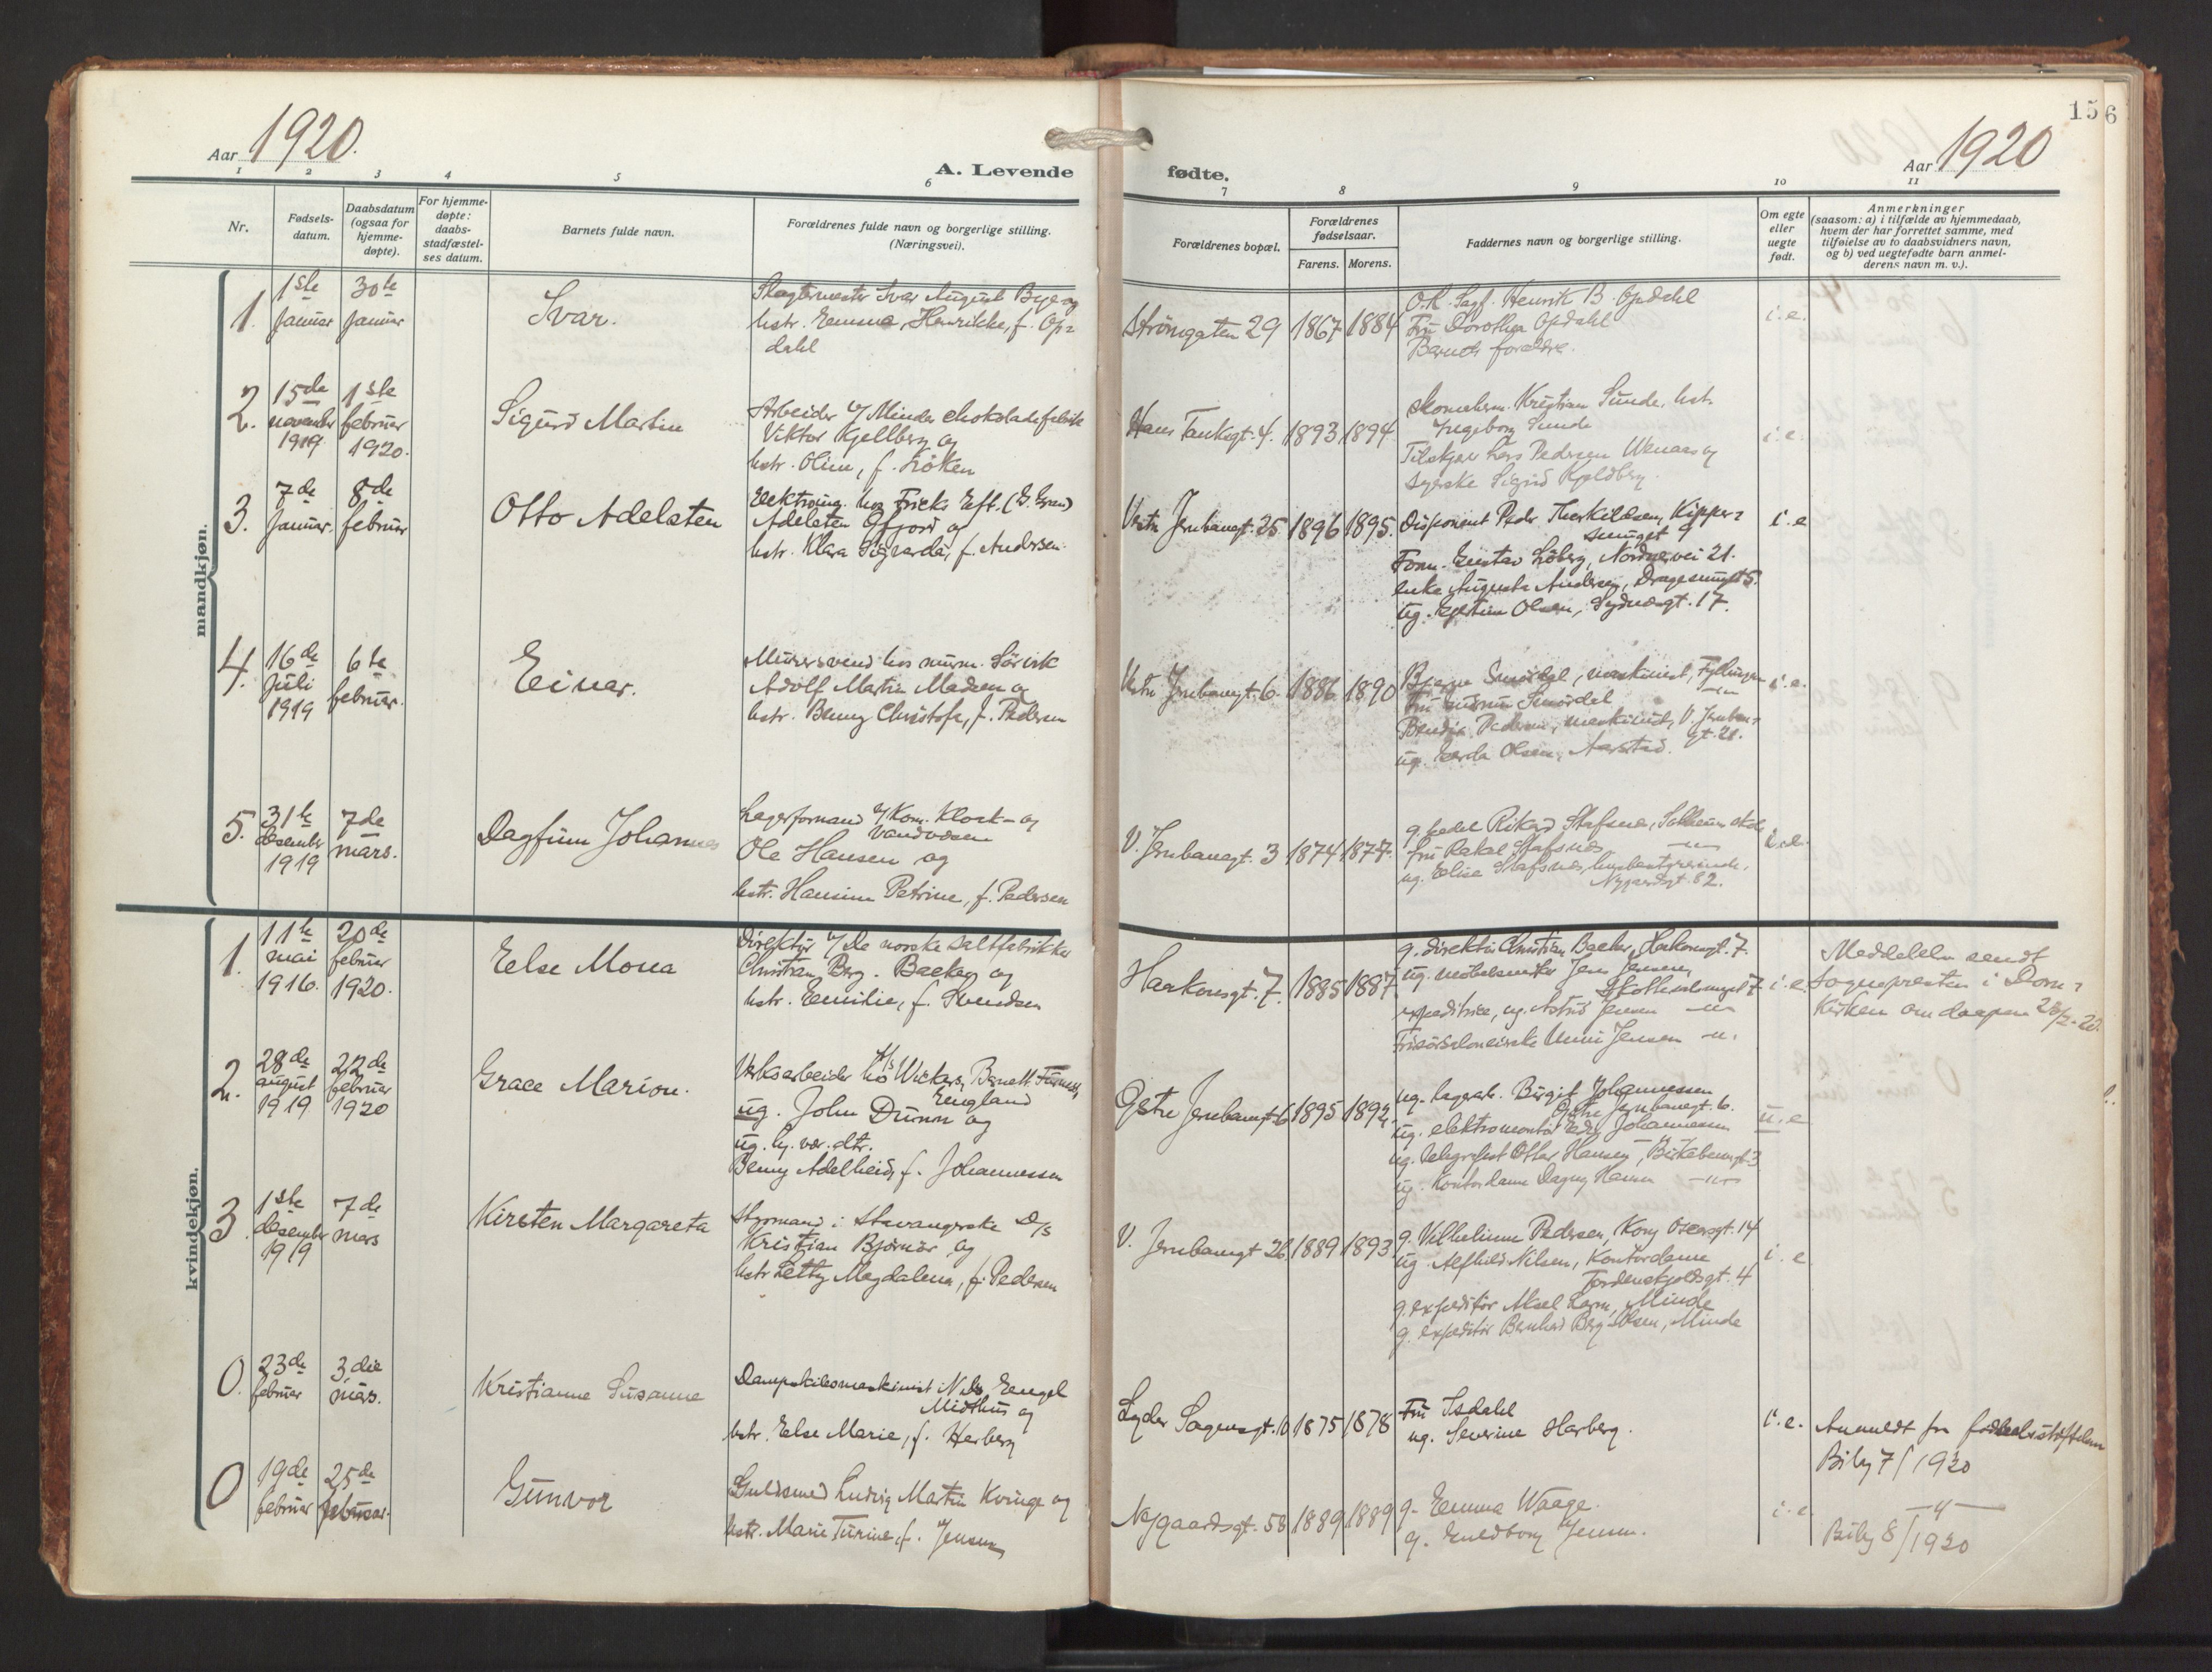 156
Aar 1920.
A. Levende
fødte.
Aar 1920
1 2 3 4 5 6
7 8 9 10 11
Nr.
Fødsels-
datum.
Daabsdatum
(ogsaa for
hjemme-
døpte).
For hjemme-
døpte:
daabs-
stadfæstel-
ses datum.
Barnets fulde navn.
Forældrenes fulde navn og borgerlige stilling.
(Næringsvei).
Forældrenes bopæl.
Forældrenes
fødselsaar.
Farens. Morens.
Faddernes navn og borgerlige stilling.
Om egte
eller
uegte
født.
Anmerkninger
(saasom: a) i tilfælde av hjemmedaab,
hvem der har forrettet samme, med
tilføielse av to daabsvidners navn,
og b) ved uegtefødte barn anmel-
derens navn m. v.).
mandkjøn.
1.
1ste
januar
30te
januar
Ivar.
Slagtermester Ivar August Bye og
hstr. Emma Henrikke, f. Op-
dahl
Strømgaten 29
1867 1884
O.R. Sagf. Henrik B. Opdahl
Fru Dorothea Opdahl
Barnets forældre.
i. e.
2.
15de
november
1919
1ste
februar
1920.
Sigurd Martin
Arbeider v/ Minde chokoladefabrik
Viktor Kjellberg og
hstr. Oline, f. Løken
Hans Tanksgt. 4.
1893 1894
Kristian Sunde, hstr.
Ingeborg Sunde
Tilskjær Lars Pedersen og
syerske Sigrid
i. e.
3.
7de
januar.
8de
februar
Otto Adelsten
hos Fricks Eft.
Adelsten Ofjord og
hstr. Klara Sigvarda, f. Andersen.
Vestre Jernbanegt. 25
1896 1895.
Disponent Peder Therkildsen, Kipper-
smuget 9
Form. Gustav Löberg, Nordnesvei 21.
enke Augusta Andersen, Dragesmuget 5.
ug. Olsen, Sydnesgt. 17.
i. e
4.
16de
juli
1919
6te
februar.
Einar.
Murersvend hos murm. Sörvik
Adolf Martin Madsen og
hstr. Benny Christofa, f. Pedersen
Vestre Jernbanegt. 6.
1886 1890
Bjarne Smördal, maskinist, Fyllingen
Fru Gudrun Smördal —"—
Pedersen, maskinist, V. Jernbane-
gt. 21.
ug. Gerda Olsen, Aarstad.
i. e.
5.
31te
desember
1919
7de
mars.
Dagfinn Johannes
Lagerformand v/ Kom. Kloak- og
Vandvæsen
Ole Hansen og
hstr. Hansine Petrine, f. Pedersen
V. Jernbanegt. 3
1874 1877.
g. pedel Rikard Stafsnes, Solheim skole
fru Rakel Stafsnes —"—
ug. Elise Stafsnes, husbestyrerinde,
Nygaardsgt. 82.
i. e.
kvindekjøn.
1.
11te
mai
1916.
20de
februar
1920.
Else Mona
Direktør v/ De norske saltfabrikker
Christian Berg-Backer og
hstr. Emilie, f. Svendsen
Haakonsgt. 7.
1885 1887
g. direktör Christian Backer, Haakonsgt. 7.
ug. Jens Jensen,
expeditrice, ug. Astrid Jensen —"—
Jensen —"—.
i. e.
Meddelelse sendt
sognepresten i Dom-
kirken om daapen 28/2-20.
2.
28de
august
1919
22de
februar
1920
Grace Marion.
Verksarbeider hos A/s Wickers, Barrett Furness,
England
ug. John Dunn og
ug. hj. vær. dtr.
Benny Adelheid, f. Johannessen
Østre Jernbanegt. 6
1895 1892.
ug. Birgit Johannessen
Østre Jernbanegt. 6.
ug. elektromontör Edv. Johannessen
ug. telegrafist Ottar Hansen,
ug. Kontordame Dagny Hansen —"—
u. e
3.
1ste
desember
1919
7de
mars
Kirsten Margareta
Styrmand i Stavangerske D/s
Kristian Björnör og
hstr. Letty Magdalena, f. Pedersen
V. Jernbanegt 26
1889 1893
g. Vilhelmine Pedersen, Kong Oscarsgt. 14
ug. Alfhild Nilsen, Kontordame
Tordenskjoldsgt. 4
g. expeditör Aksel Larm, Minde
g. expeditör Bernhard Berg-Olsen, Minde
i. e
0.
23de
februar
3die
mars.
Kristianne Susanne
Dampskibsmaskinist Nils Engel
Midthus og
hstr. Else Marie, f. Herberg
Lyder Sagensgt. 10
1875 1878
Fru Isdahl
ug. Severine Harberg.
i. e.
Anmeldt fra fødselsstiftelsen
Bilag 7/1920
0
19de
februar
25de
februar.
Gunvor
Guldsmed Ludvig Martin Kvinge og
hstr. Marie Turine, f. Jensen
Nygaardsgt. 58
1889 1889
g. Emma Waage.
g. Guldborg Jensen.
i. e.
—"—
Bilag 8/1920